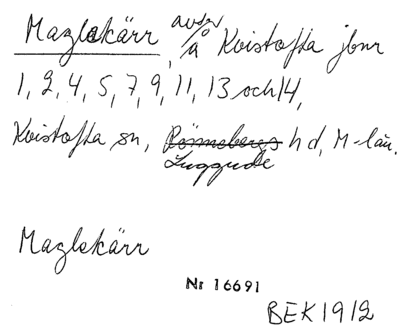 Maglekärr, avser å Kvistofta jbnr
1, 2, 4, 5, 7, 9, 11, 13 och 14,
Kvistofta sn, Rönnebergs hd, M-län.
Luggude
Maglekärr
Nr 16691
BEK 1912